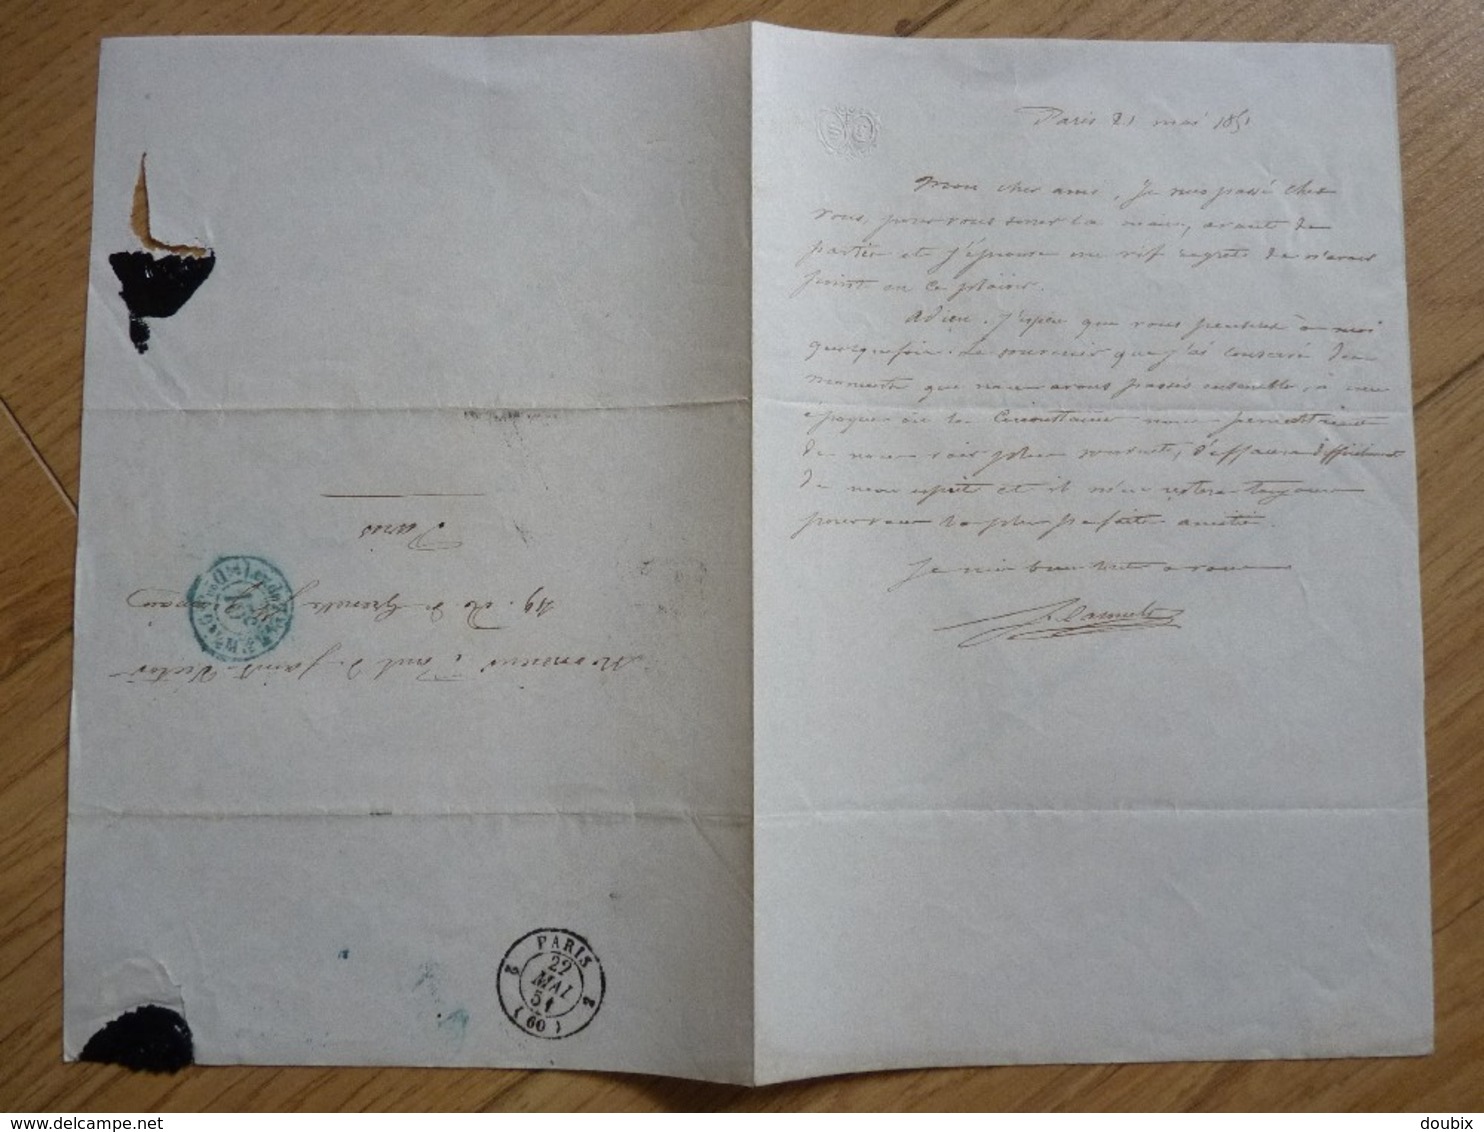 Paris 21 mai 1851
Mon cher ami, Je suis passé chez
vous, pour vous serrer la main, avant de
partir et j'éprouve un vif regret de n'avoir
point eu ce plaisir.
Adieu. J'espère que vous penserez à moi
quelquefois. Le souvenir que j'ai conservé des
moments que nous avons passés ensemble, à une
époque où les nous
de nous voir plus souvent, s'effacera difficilement
de mon esprit et il m'en restera toujours
pour vous la plus parfaite amitié.
Je suis bien tout à vous
Monsieur Paul de Saint-Victor
49. rue de Grenelle St Germain
Paris
PARIS
2 2
22
MAI
51
(60)
delcampe.net
doubix